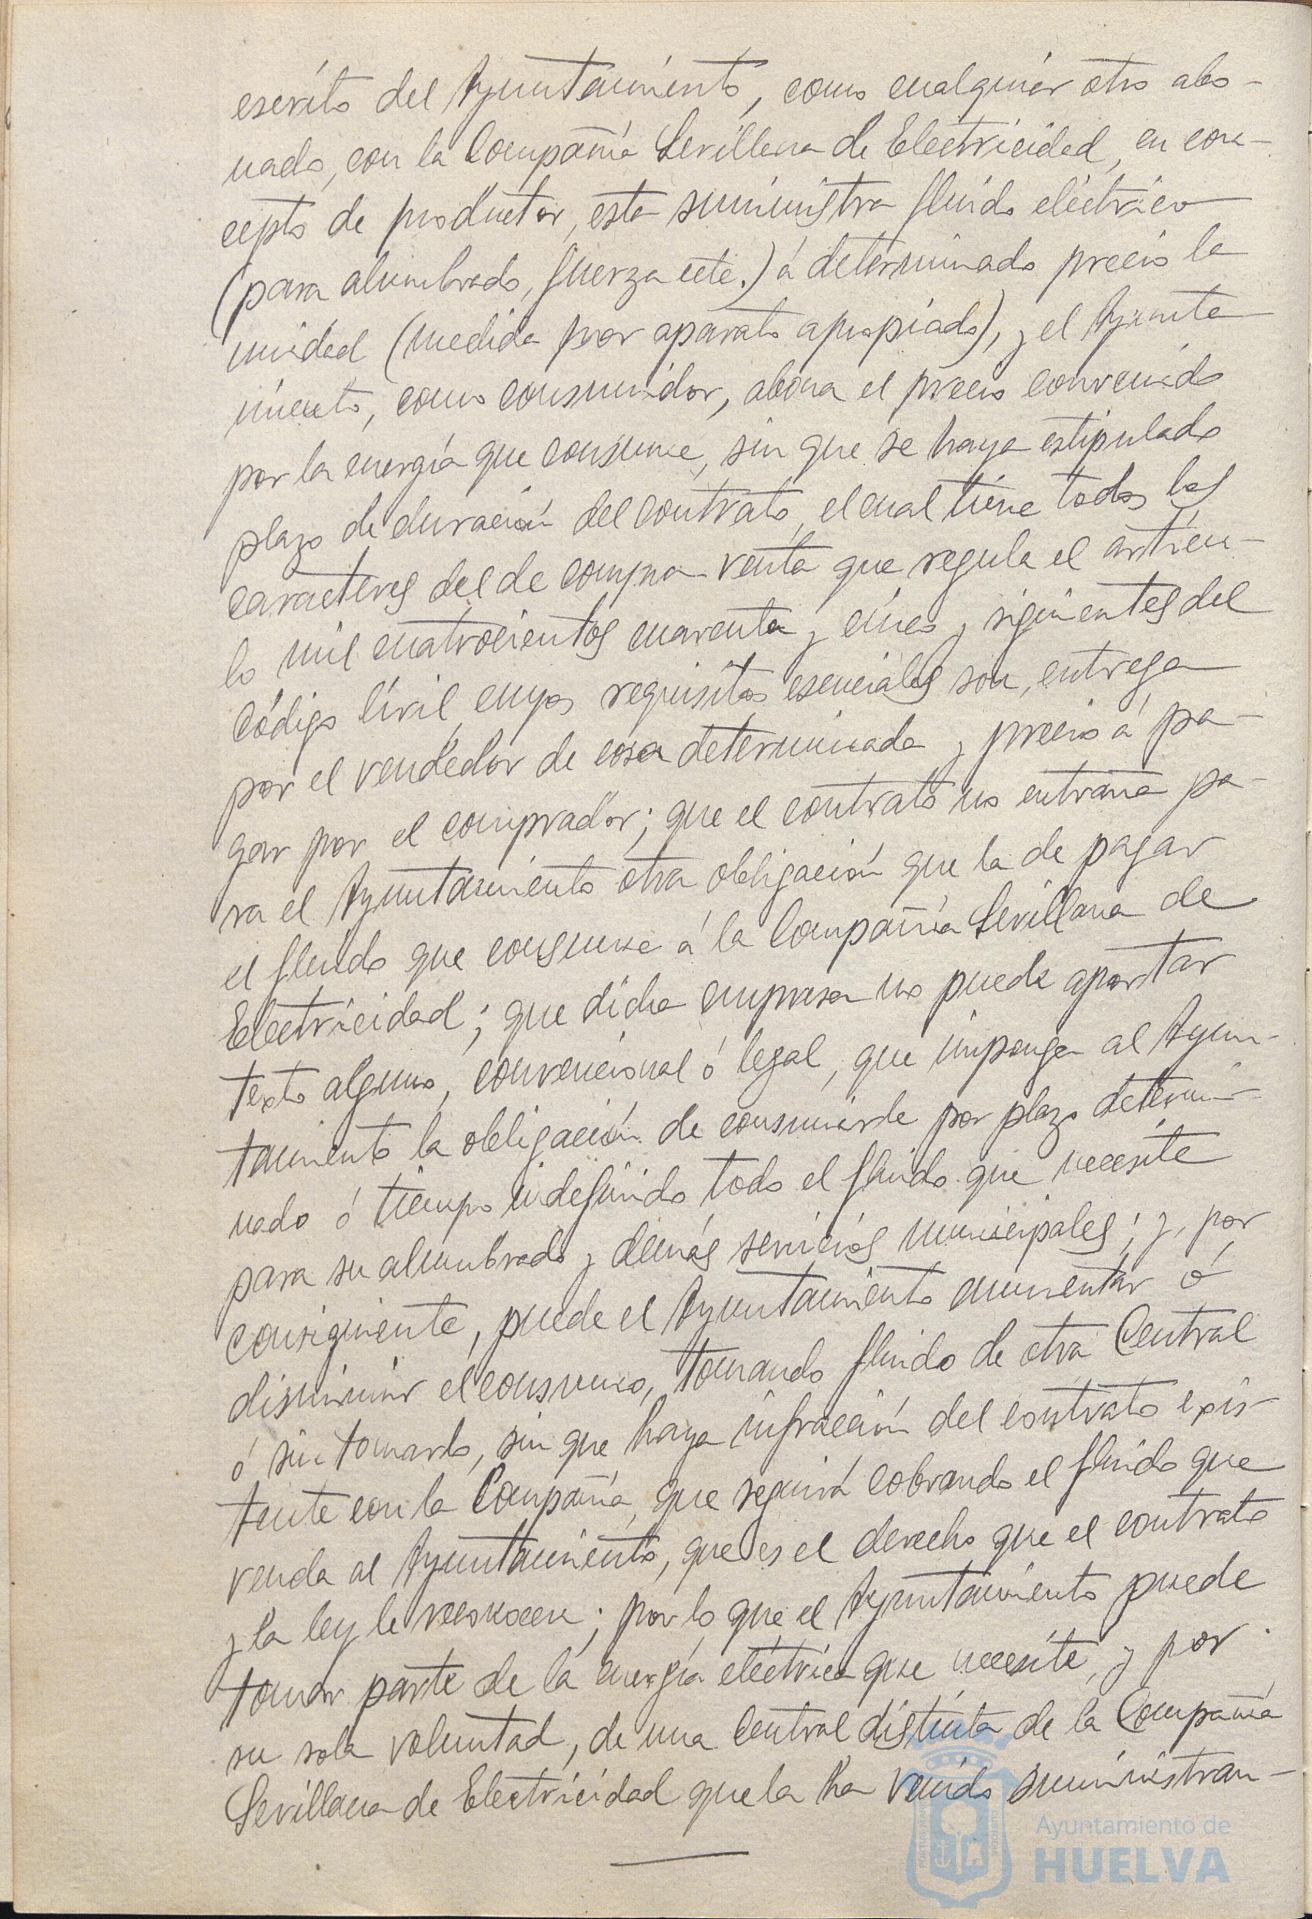 escrito del Ayuntamiento, como cualquier otro abo-
nado, con la Compañía Sevillana de Electricidad, en con-
cepto de productor, esta suministra fluido eléctrico
(para alumbrado, fuerza ecte.) á determinado precio la
unidad (medida por aparato apropiado), y el Ayunta
miento, como consumidor, abona el precio convenido
por la energía que consume, sin que se haya estipulado
plazo de duración del contrato, el cual tiene todos los
caracteres del de compra-venta que regula el artícu-
lo mil cuatrocientos cuarenta y cinco y siguientes del
Código Civil, cuyos requisitos esenciales son, entrega
por el vendedor de cosa determinada y precio á pa-
gar por el comprador; que el contrato no entraña pa-
ra el Ayuntamiento otra obligación que la de pagar
el fluido que consume á la Compañía Sevillana de
Electricidad; que dicha empresa no puede aportar
texto alguno, convencional ó legal, que imponga al Ayun-
tamiento la obligación de consumirle por plazo determi-
nado ó tiempo indefinido todo el fluido que necesite
para su alumbrado y demás servicios municipales; y, por
consiguiente, puede el Ayuntamiento aumentar ó
disminuir el consumo, tomando fluido de otra Central
ó sin tomarlo, sin que haya infracción del contrato exis-
tente con la Compañía, que seguirá cobrando el fluido que
venda al Ayuntamiento, que es el derecho que el contrato
y la ley le reconocen; por lo que el Ayuntamiento puede
tomar parte de la energía eléctrica que necesite, y por
su sola voluntad, de una Central distinta de la Compañía
Sevillana de Electricidad que la ha venido suministran-
Ayuntamiento de
HUELVA